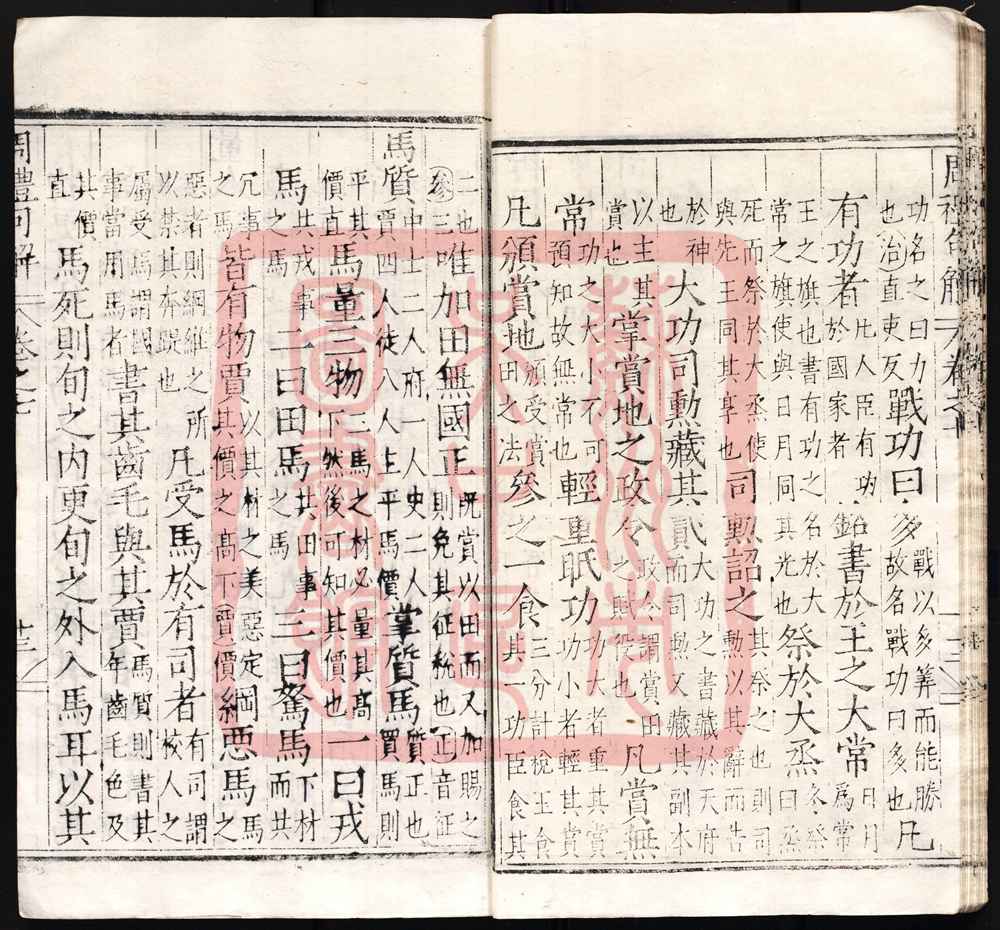 周禮句解 卷之七
功名之曰力也治直吏反戰功曰多戰以多筭而能勝故名戰功曰多也凡
有功者凡人臣有功於國家者銘書於王之大常日月為常
王之旗也書有功之名於大常之旗使與日月同其光也祭於大烝冬祭曰烝
死而祭於大烝使與先王同其享也司勲詔之其祭之也則司勲以其辭而告
於神也大功司勲藏其貳大功之書藏於天府而司勲又藏其副本
以主其賞也掌賞地之政令政令謂賞田之賦役也凡賞無
常功之大小不可預知故無常也輕重眡功功大者重其賞功小者輕其賞
凡頒賞地頒受賞田之法參之一食三分計稅王食其一功臣食其
二也參三唯加田無國正既賞以田而又加賜之則免其征稅也正音征
馬質中士二人府一人史二人賈四人徒八人掌質馬質正也買馬則
平其價直馬量三物三馬之材必量其高下然後可知其價也一曰戎
馬共戎事之馬二曰田馬共田事之馬三曰駑馬下材而共
冗事之馬皆有物賈以其材之美惡定其價之高下賈價綱惡馬馬之
惡者則綱維之所以禁其奔踶也凡受馬於有司者有司謂校人之
屬受馬謂國事當用馬者書其齒毛與其賈馬質則書其年齒毛色及
其價直馬死則旬之內更旬之外入馬耳以其
周禮句解 卷之七 十三